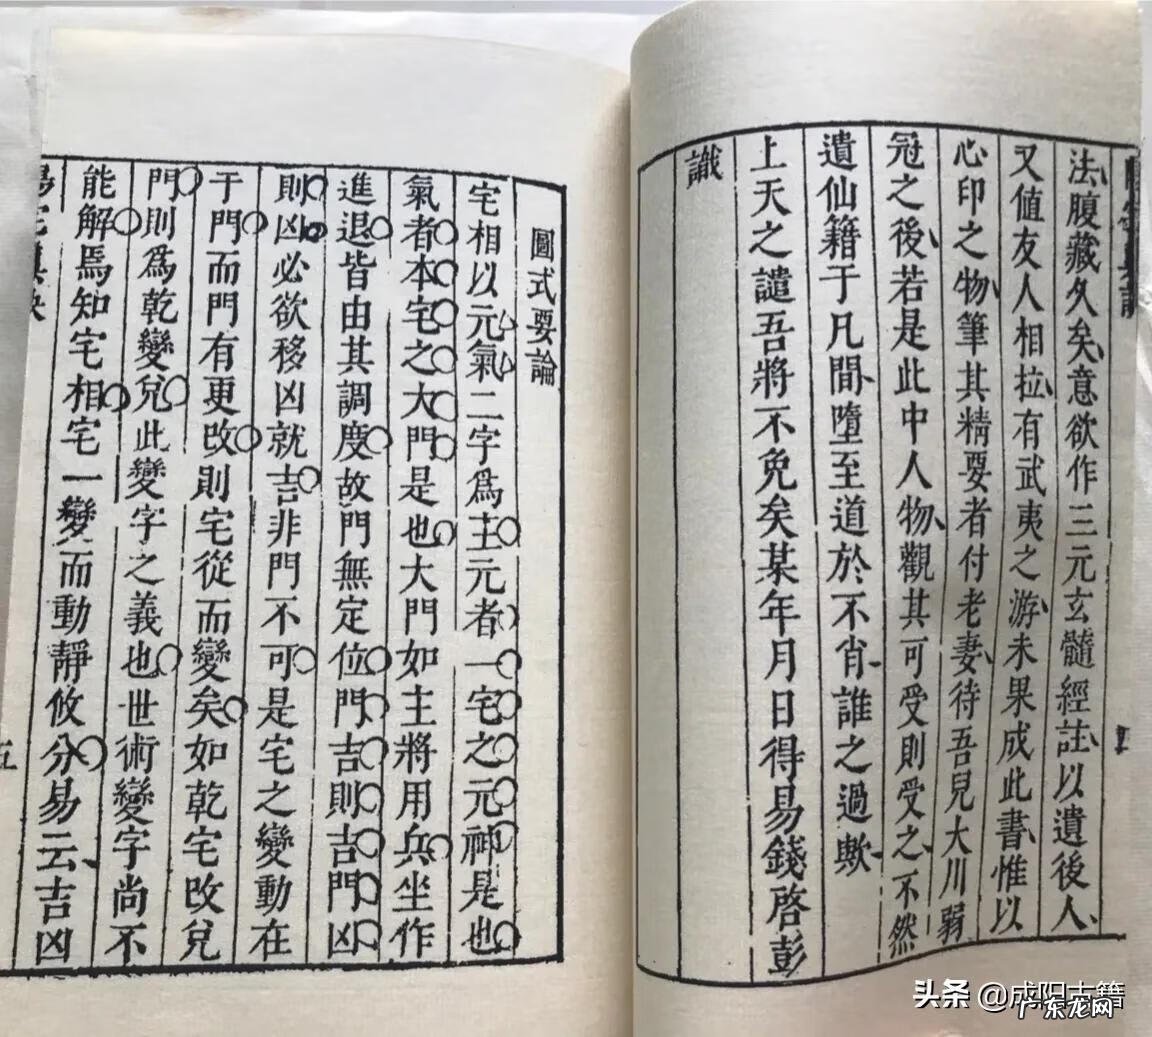 法腹藏久矣意欲作三元玄髓經註以遺後人
又值友人相拉有武夷之游未果成此書惟以
心印之物筆其精要者付老妻待吾兒大川弱
冠之後若是此中人物觀其可受則受之不然
遺仙籍于凡間墮至道於不肖誰之過歟
上天之譴吾將不免矣某年月日得易錢啓彭
識
圖式要論
宅相以元氣二字爲主元者一宅之元神是也
氣者本宅之大門是也大門如主將用兵坐作
進退皆由其調度故門無定位門吉則吉門凶
則凶必欲移凶就吉非門不可是宅之變動在
于門而門有更改則宅從而變矣如乾宅改兌
門則爲乾變兌此變字之義也世術變字尚不
能解焉知宅相宅一變而動靜攸分易云吉凶
五
头条 @成阳古籍
广东龙网